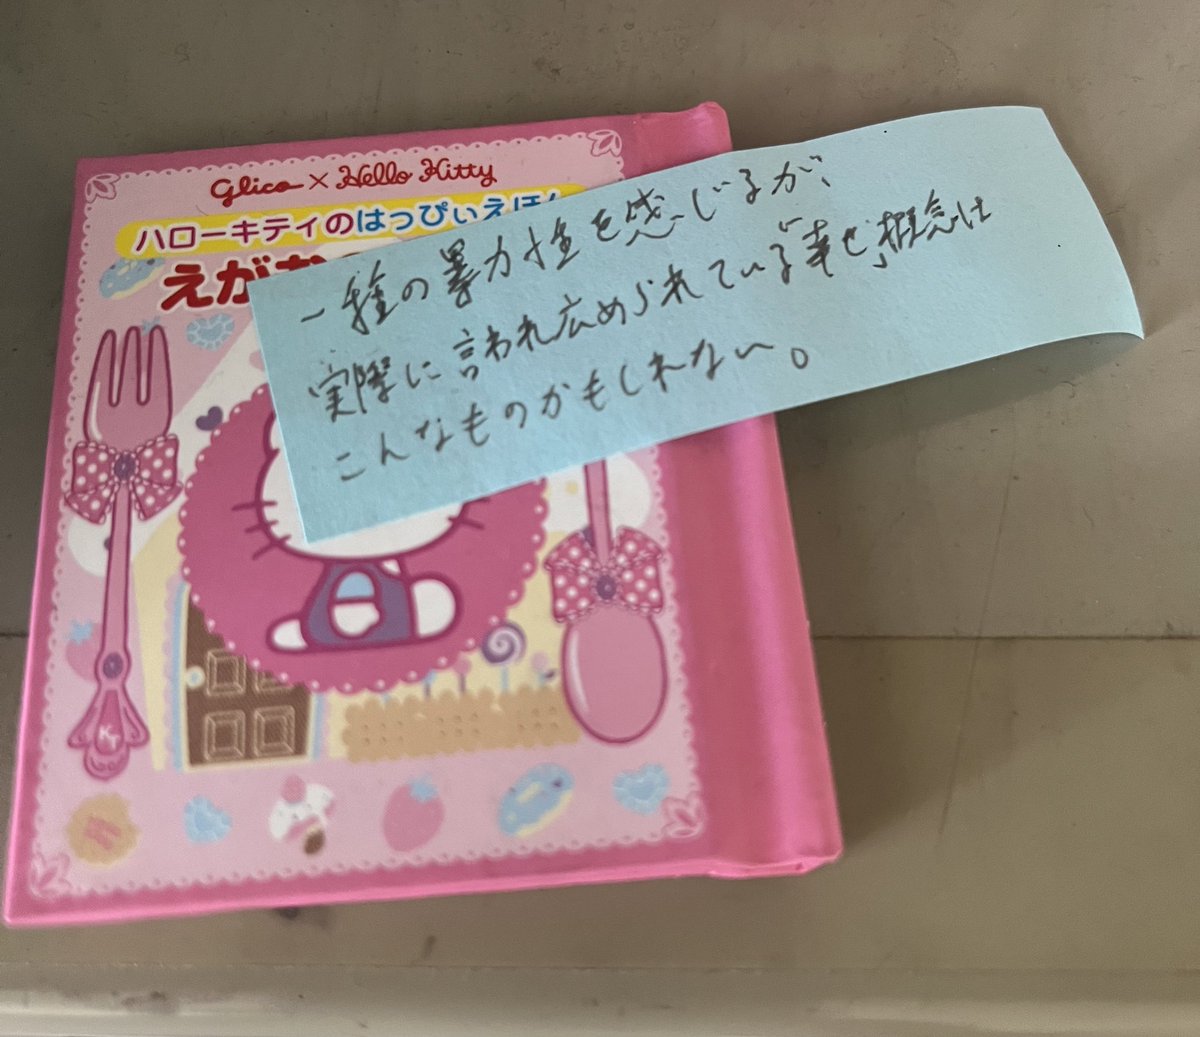 Glico × Hello Kitty
ハローキティのはっぴぃえほん
えがお
一種の暴力性を感じるが、
実際に言われ広められている「幸せ」概念は
こんなものかもしれない。
KT